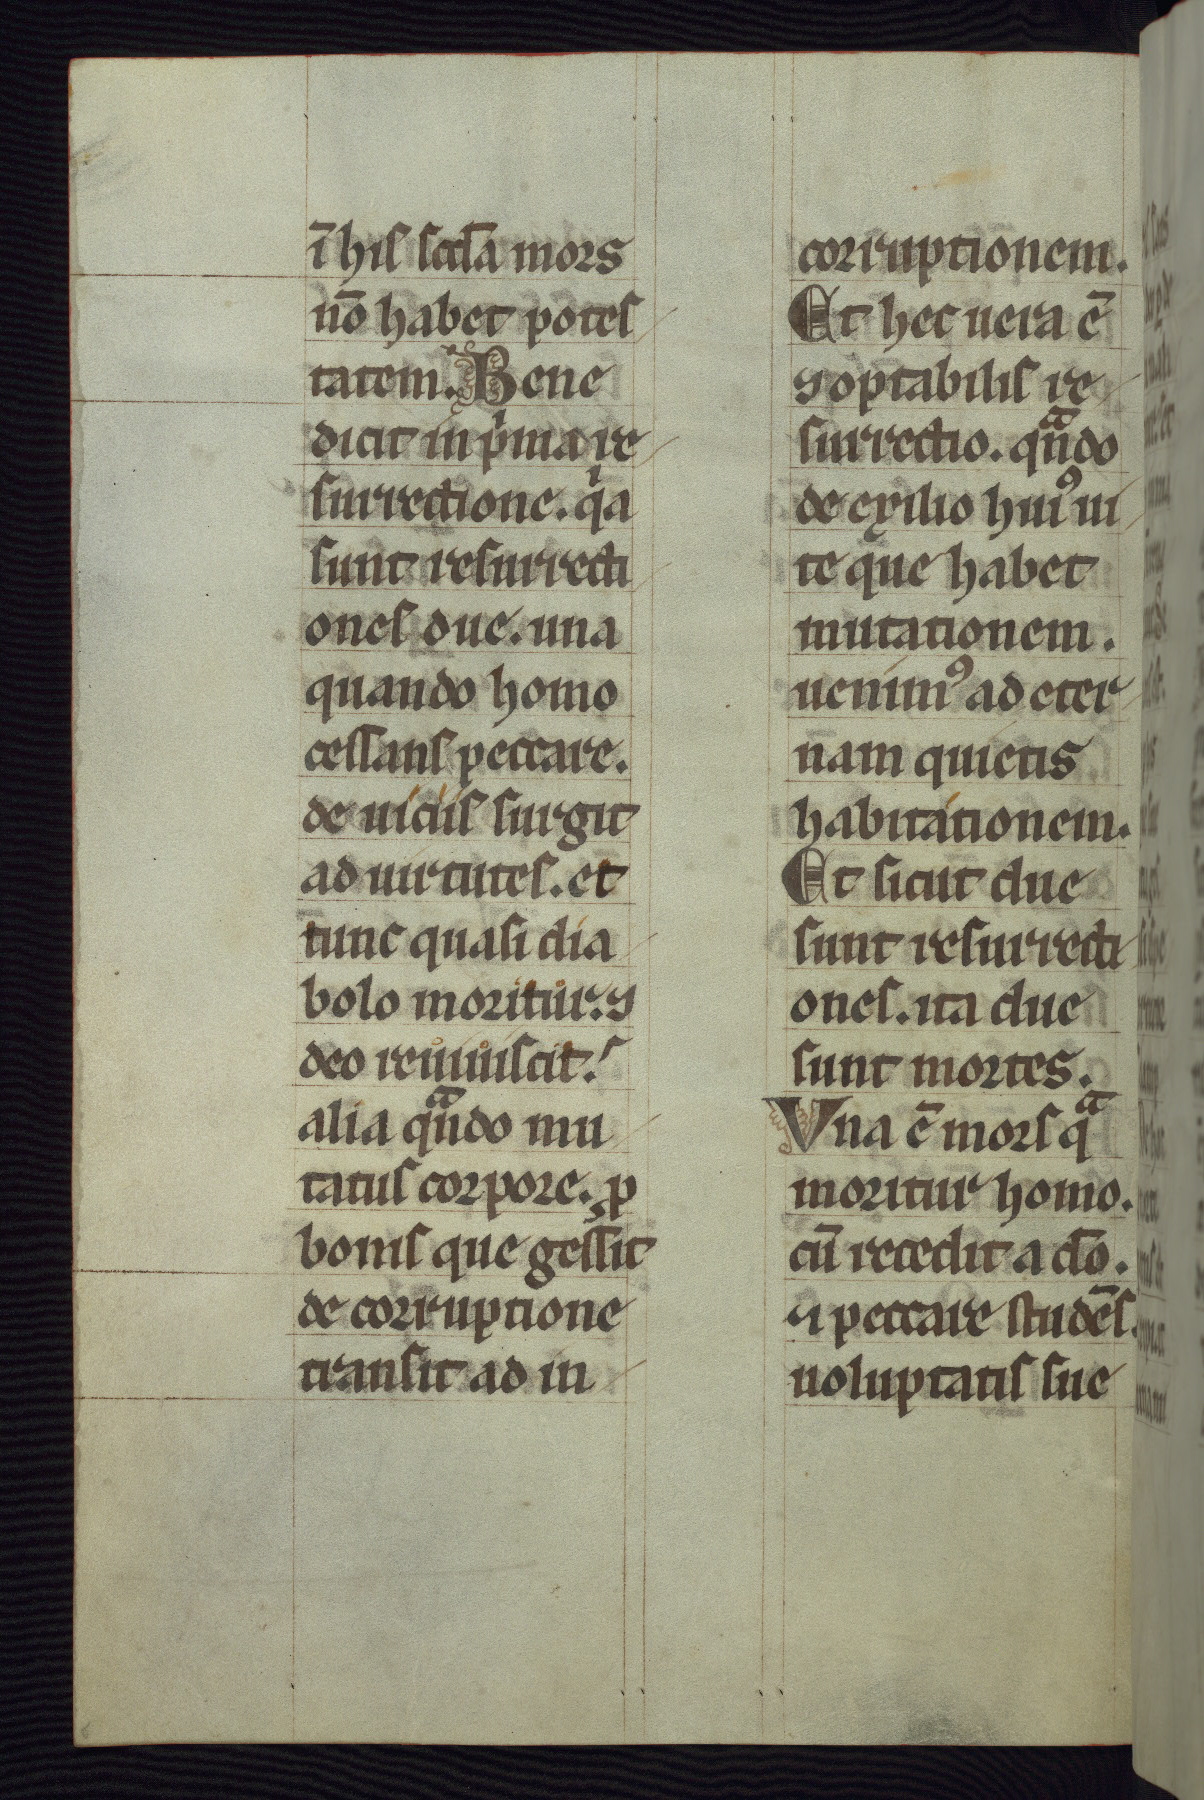 ī his scd̄a mors
nō habet potes
tatem. Bene
dicit in pͥma re
surrectione. qͥa
sunt resurrecti
ones due. una
quando homo
cessans peccare.
de uiciis surgit
ad uirtutes. et
tunc quasi dia
bolo moritur. ⁊
deo reuiuiscit.
alia qᷓndo mu
tatus corpore. p
bonis que gessit
de corruptione
transit ad in
corruptionem.
Et hec uera ē
⁊ optabilis re
surrectio. qᷓndo
de exilio huiꝰ ui
te que habet
mutationem.
uenimꝰ ad eter
nam quietis
habitationem.
Et sicut due
sunt resurrecti
ones. ita due
sunt mortes.
Vna ē mors qᷓ
moritur homo.
cū recedit a dō.
⁊ peccare studēs.
uoluptatis sue